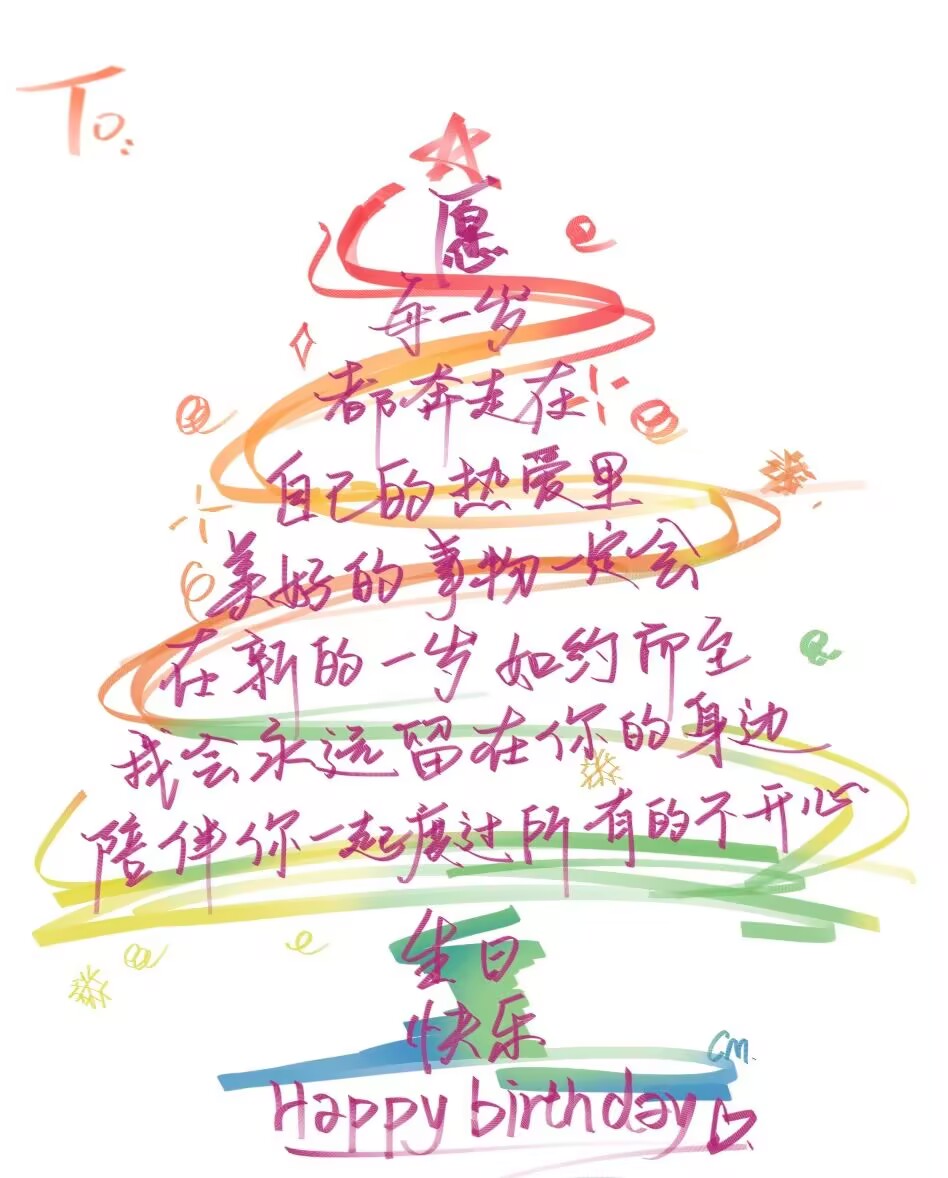 To:
愿
每一岁
都奔走在
自己的热爱里
美好的事物一定会
在新的一岁如约而至
我会永远留在你的身边
陪伴你一起度过所有的不开心
生日
快乐
CM.
Happy birthday